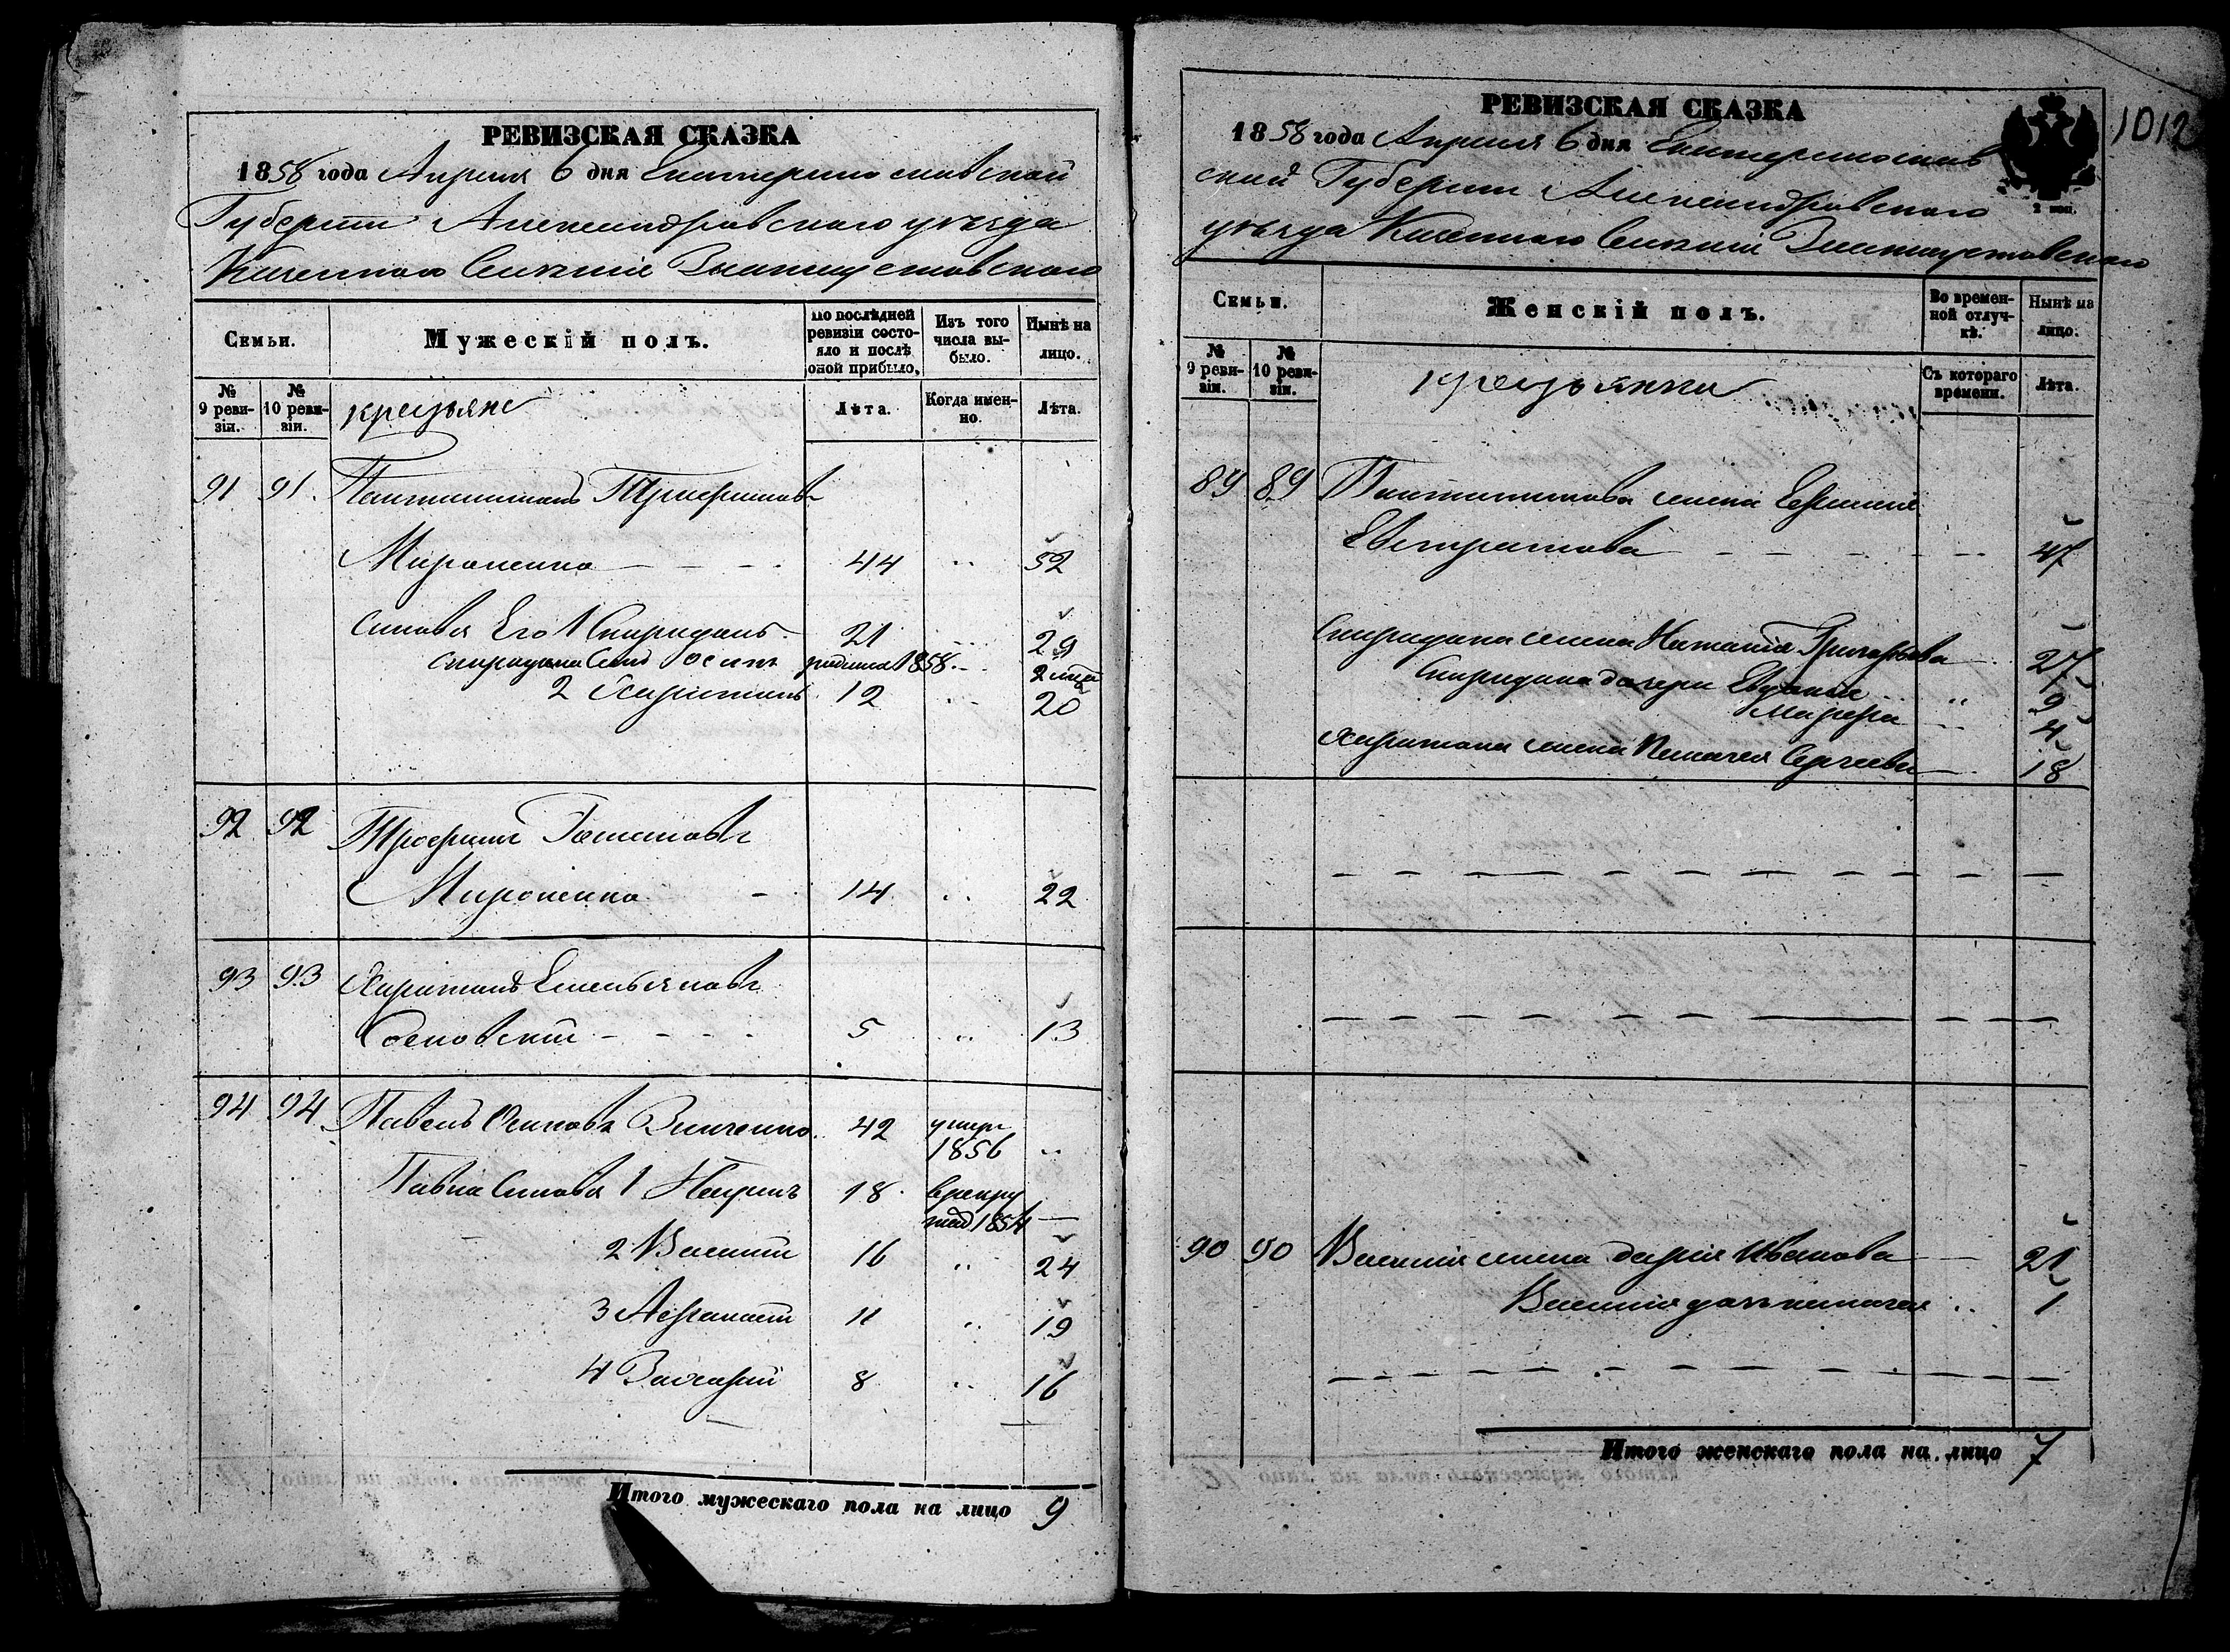 РЕВИЗСКАЯ СКАЗКА
1858 года Апреля 6 дня Екатеринославской
Губернии Александровского уезда
Казенного Селения Златоустовского
Семьи.
Мужескій полъ.
По последней ревизіи состояло и послѣ оной прибыло,
Изъ того числа выбыло.
Нынѣ на лицо.
№ 9 ревизіи.
№ 10 ревизіи.
крестьяне
Лѣта.
Когда именно.
Лѣта.
91 91. Пантелимонъ Трофимовъ
Мироненко 44 " 52
Синовья Его 1 Спиридонъ 21 29
Спиридона Синъ Осипъ 1858 2
2 Харитонъ 12 20
92 92 Трофимъ Потаповъ
Мироненко 14 " 22
93 93 Харитонъ Емельяновъ
Сосновскій 5 " 13
94 94 Павелъ Осиповъ Винченко 42 умеръ 1856 "
Павла Синовья 1 18 в рекруты 1854 —
2 Василій 16 " 24
3 Афанасій 11 " 19
4 Захарій 8 " 16
Итого мужескаго пола на лицо 9
1012
РЕВИЗСКАЯ СКАЗКА
1858 года Апреля 6 дня Екатеринослав
ской Губернии Александровского
уезда Казенного Селения Златоустовского
2 коп.
Семьи.
Женскій полъ.
Во временной отлучкѣ.
Нынѣ на лицо.
№ 9 ревизіи.
№ 10 ревизіи.
крестьянки
Съ котораго времени.
Лѣта.
89 89 Пантелимона жена Ефимия
Евстратова 47
Спиридона жена Наталія Григорьева 27
Спиридона дочери Евдокия " 9
Марфа 4
Харитона жена Пелагея Сергеева 18
90 90 Василія жена Дарія Иванова 21
Василія дочь Пелагея " 1
Итого женскаго пола на лицо 7